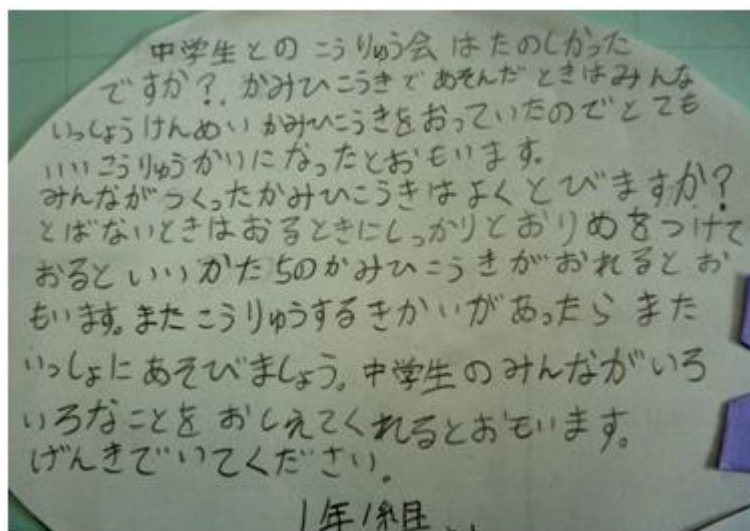 中学生とのこうりゅう会はたのしかった
ですか？かみひこうきであそんだときはみんな
いっしょうけんめいかみひこうきをおっていたのでとても
いいこうりゅうかいになったとおもいます。
みんながつくったかみひこうきはよくとびますか？
とばないときはおるときにしっかりとおりめをつけて
おるといいかたちのかみひこうきがおれるとお
もいます。またこうりゅうするきかいがあったらまた
いっしょにあそびましょう。中学生のみんながいろ
いろなことをおしえてくれるとおもいます。
げんきでいてください。
1年1組